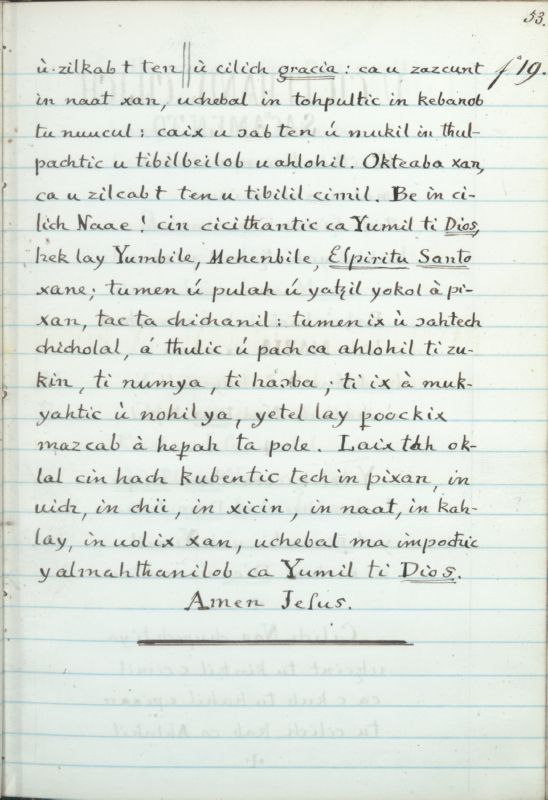 53.
ù zilkab t ten || ù cilich gracia : ca u zazcunt fº 19.
in naat xan, uchebal in tohpultic in kebanob
tu nuucul : caix u ɔab ten ú mukil in thul-
pachtic u tibilbeilob u ahlohil. Okteaba xan,
ca u zilcabt ten u tibilil cimil. Be in ci-
lich Naae ! cin cicithantic ca Yumil ti Dios,
hek lay Yumbile, Mehenbile, Eſpiritu Santo
xane ; tumen ú pulah ú yatzil yokol à pi-
xan, tac ta chichanil : tumen ix ù ɔahtech
chicholal, á thulic ú pach ca ahlohil ti zu-
kin, ti numya, ti haɔba ; ti ix à muk-
yahtic ù nohil ya, yetel lay poockix
mazcab à hepah ta pole. Laix tah ok-
lal cin hach kubentic tech in pixan, in
uich, in chii, in xicin, in naat, in kah-
lay, in uol ix xan, uchebal ma in pochic
yalmahthanilob ca Yumil ti Dios.
Amen Jeſus.